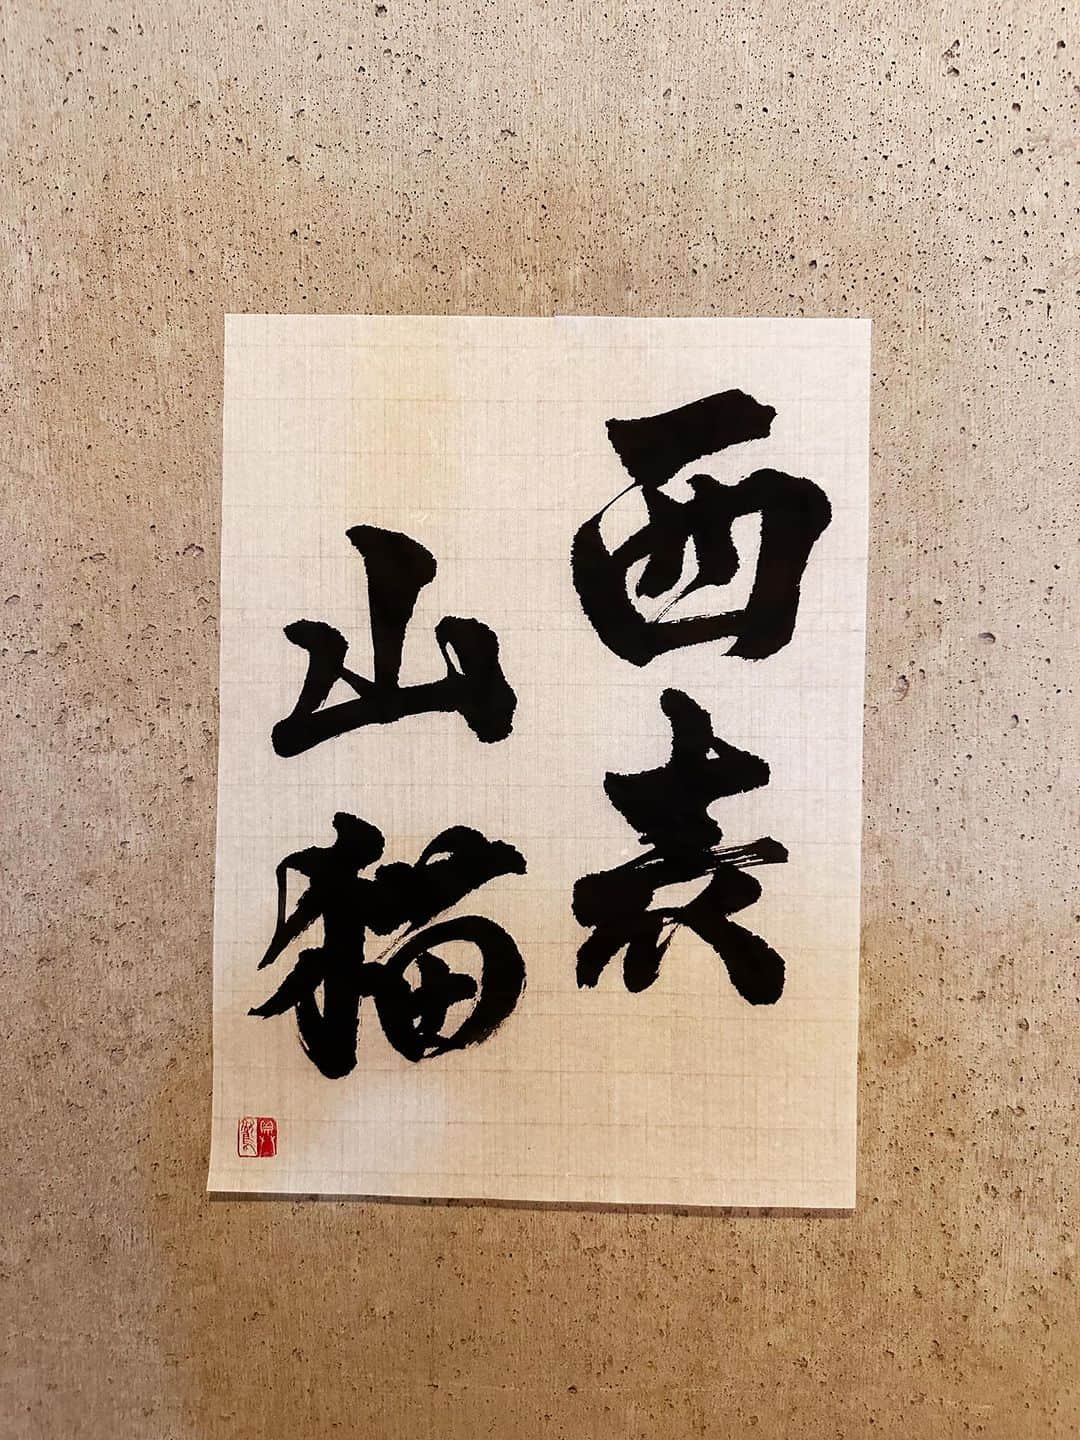 西表
山猫